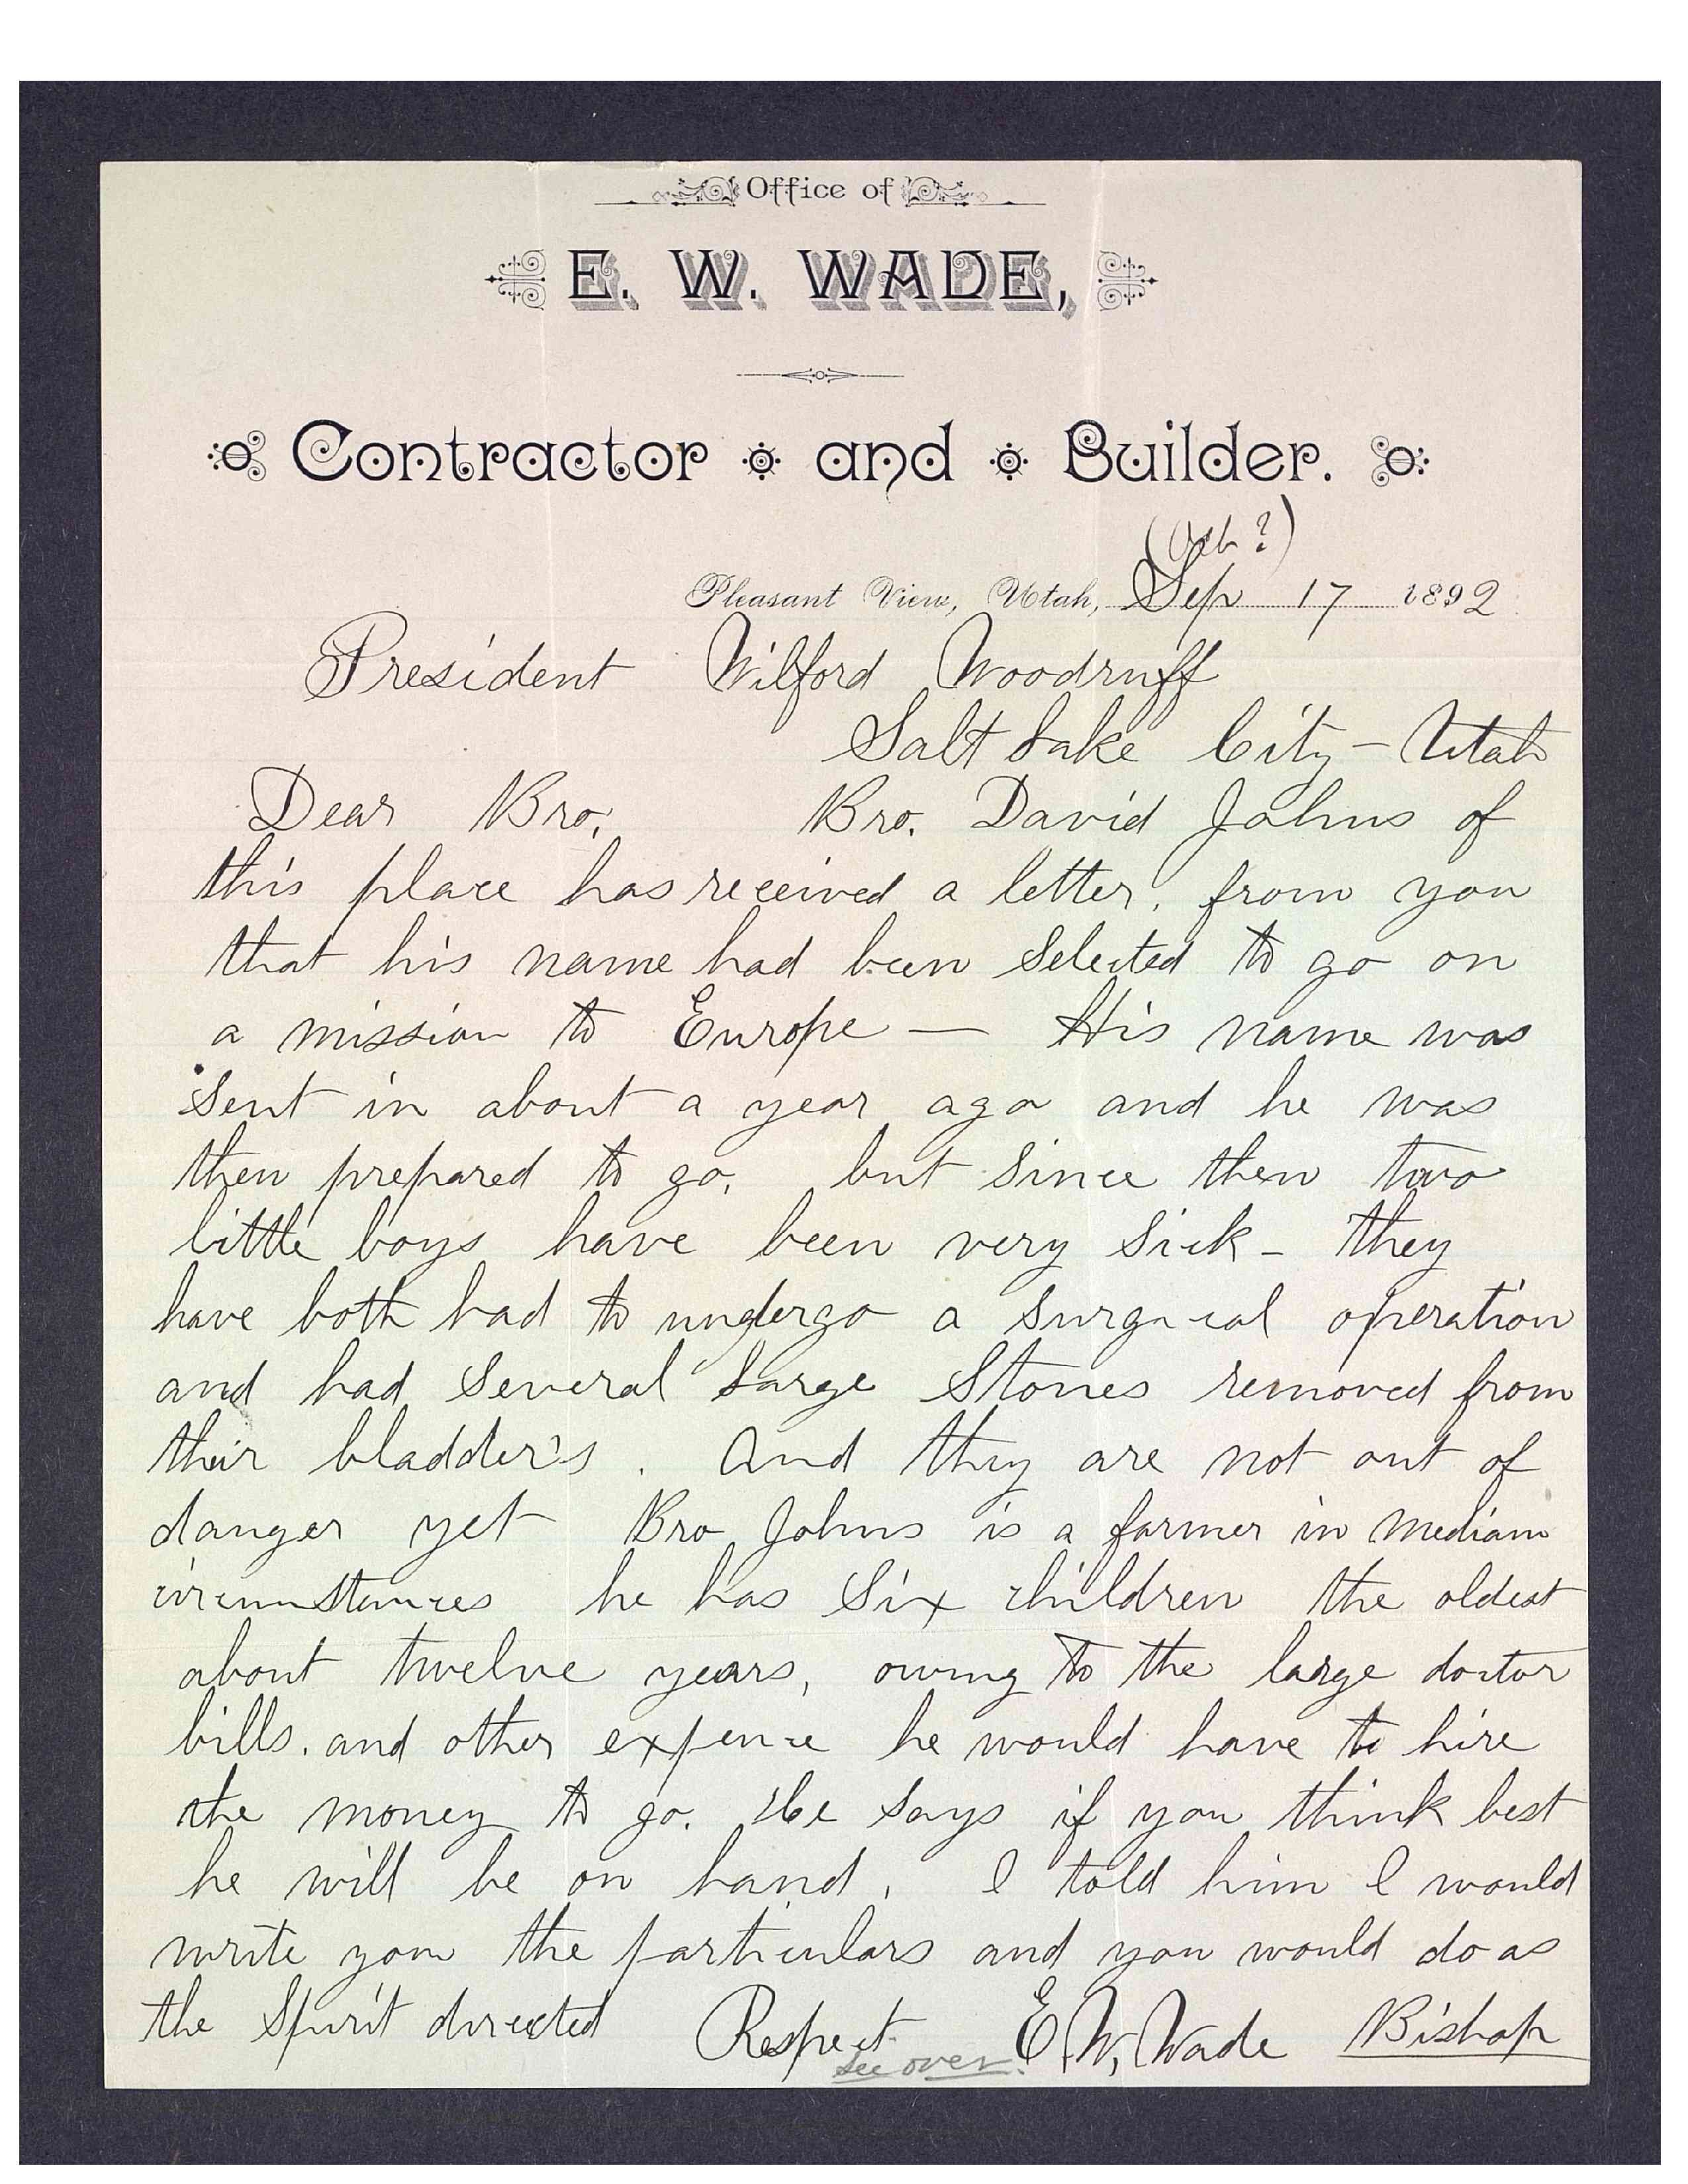 Office of
E. W. WADE,
Contractor and Builder.
(Oct ?)
Pleasant View, Utah, Sep 17 1892
President Wilford Woodruff
Salt Lake City – Utah
Dear Bro. Bro. David Johns of
this place has received a letter, from you
that his name had been selected to go on
a mission to Europe — His name was
sent in about a year ago and he was
then prepared to go, but since then two
little boys have been very sick – they
have both had to undergo a surgical operation
and had several Large Stones removed from
their bladder's. And they are not out of
danger yet Bro Johns is a farmer in medium
circumstances he has six children the oldest
about twelve years, owing to the large doctor
bills, and other expence he would have to hire
the money to go. He says if you think best
he will be on hand, I told him I would
write you the particulars and you would do as
the Spirit directed Respect. E. W. Wade Bishop
see over.